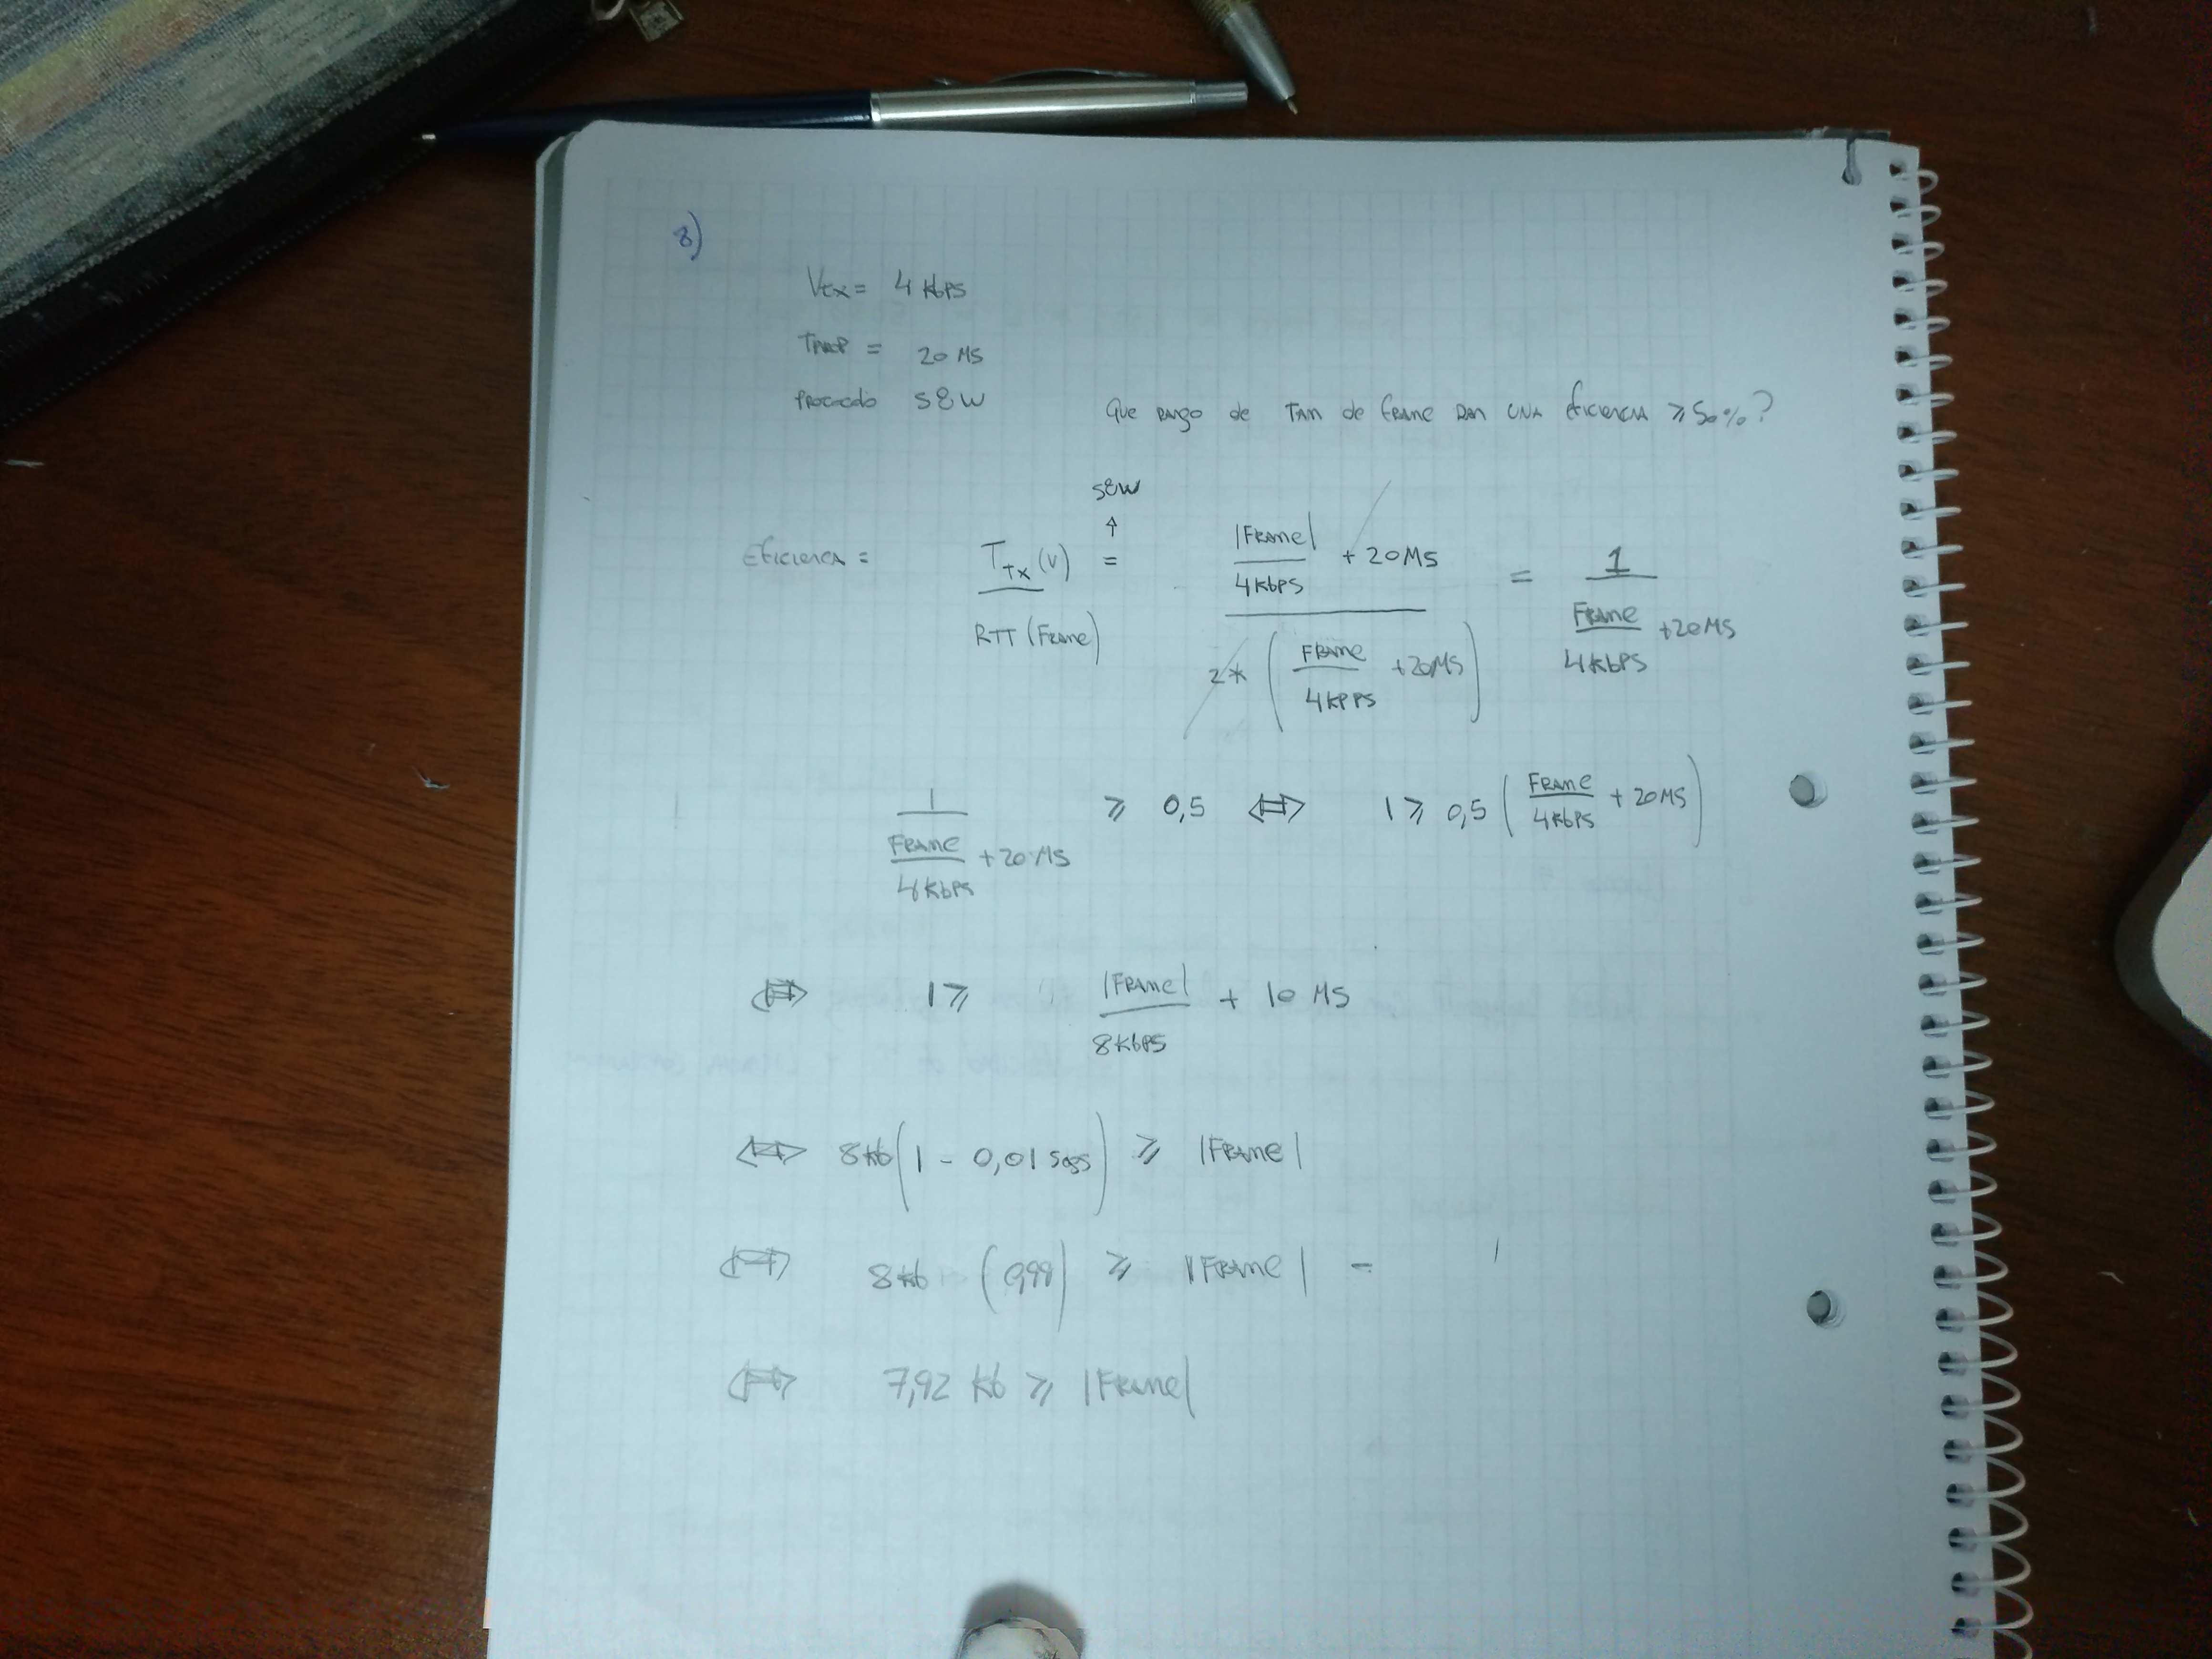 8)
Vtx = 4 kbps
Tprop = 20 ms
Protocolo S&W
Que rango de tam de frame dan una eficiencia ≥ 50%?
S&W
↑
Eficiencia = Ttx(V) / RTT(Frame) = (|Frame| / 4kbps + 20ms) / (2 * (Frame / 4kpps + 20ms)) = 1 / (Frame / 4kbps + 20ms)
1 / (Frame / 4kbps + 20ms) ≥ 0,5 ⇔ 1 ≥ 0,5 (Frame / 4kbps + 20ms)
⇔ 1 ≥ |Frame| / 8kbps + 10 ms
⇔ 8kb (1 - 0,01 segs) ≥ |Frame|
⇔ 8kb (0,99) ≥ |Frame| =
⇔ 7,92 kb ≥ |Frame|